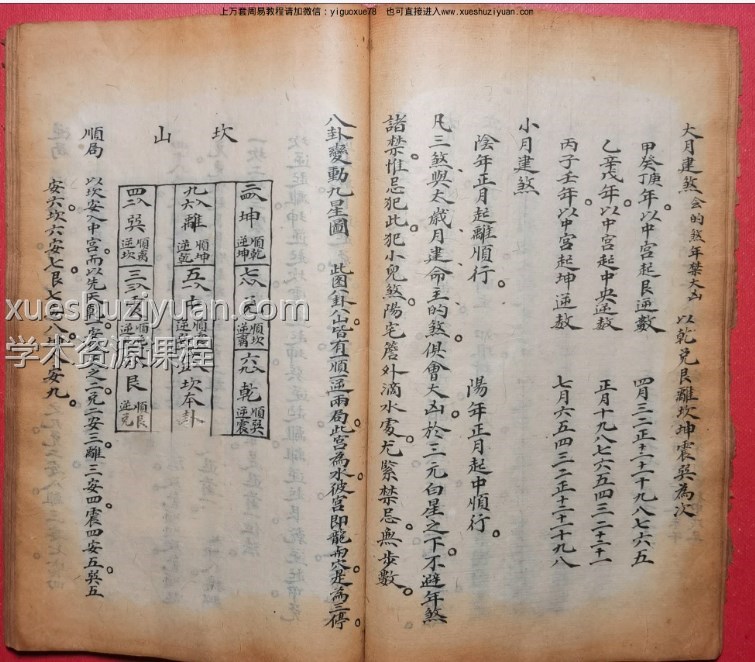 上万套周易教程请加微信：yiguoxue78 也可直接进入www.xueshuziyuan.com
大月建煞 会的煞年禁大凶 以乾兑艮離坎坤震巽為次
甲癸庚年以中宮起艮逆數 四月三二正十二十一十九八七六五
乙辛戊年以中宮起中央逆數 正月十九八七六五四三二十二十一
丙子壬年以中宮起坤逆數 七月六五四三二正十二十一十九八
小月建煞
陰年正月起離順行。 陽年正月起中順行。
凡三煞與太歲月建命主的煞俱會大凶於三元白星之下不避年煞
諸禁惟忌犯此犯小兒煞陽宅簷外滴水處尤緊禁忌無步數。
八卦變動九星圖 此图八卦八山皆有順逆兩局此宮為水彼宮即龍向穴是為三停
坎山
坤 順乾 逆坤
順坎 逆離
乾 順巽 逆震
離 順坤 逆乾
坎本卦
巽 順离 逆坎
艮 順艮 逆兑
xueshuziyuan.com
学术资源课程
順局 以坎安入中宮而以先天
之二兑二安三離三安四震四安五巽五
安六坎六安七艮七